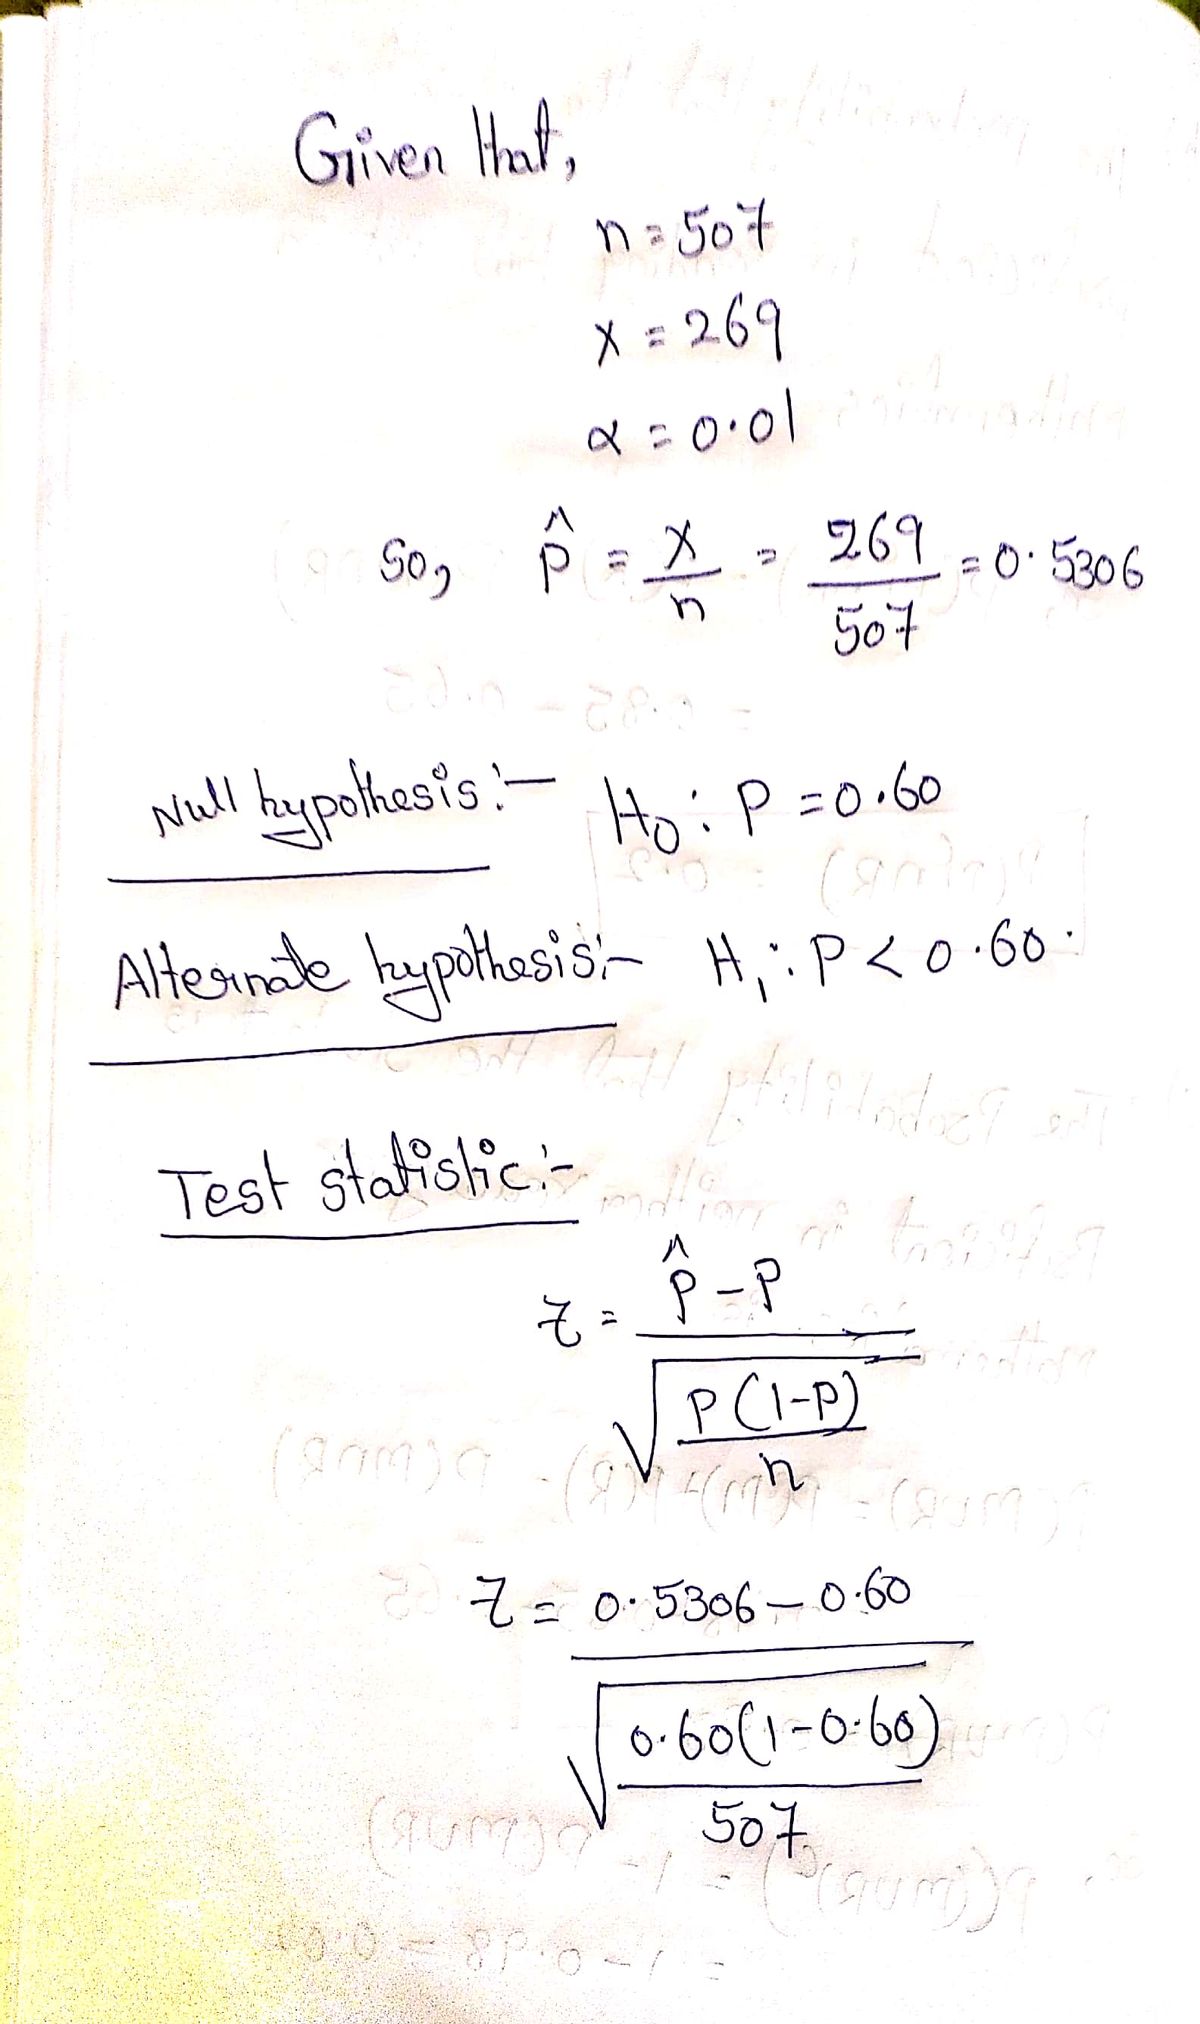 Given that,
n = 507
x = 269
α = 0.01
So, p̂ = x/n = 269/507 = 0.5306
Null hypothesis:- H₀ : P = 0.60
Alternate hypothesis:- H₁ : P < 0.60.
Test statistic:-
z = (p̂ - P) / √(P(1-P)/n)
z = (0.5306 - 0.60) / √(0.60(1-0.60)/507)